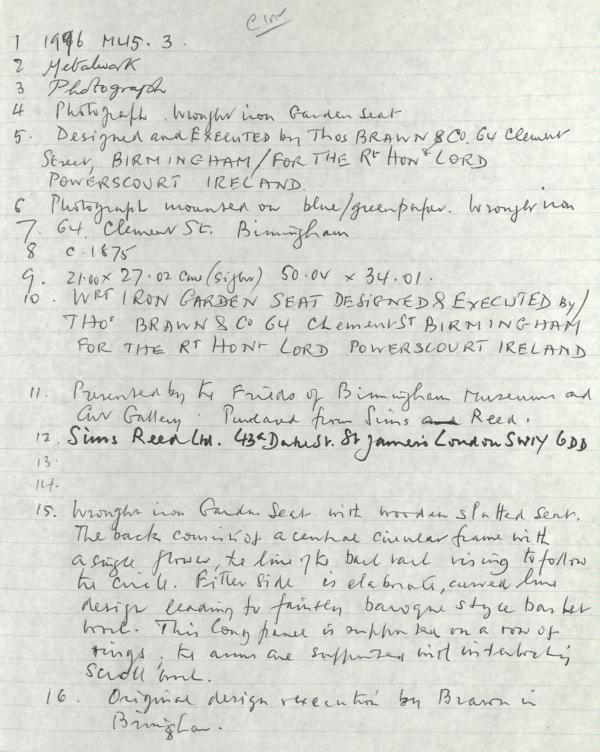 1 1996 MU5.3.
2 Metalwork
3 Photograph
4 Photograph. Wrought iron Garden seat
5. Designed and EXECUTED by Thos BRAWN & Co. 64 Clement
Street, BIRMINGHAM/FOR THE Rt HONr LORD
POWERSCOURT IRELAND.
6 Photograph mounted on blue/green paper. Wrought iron
7. 64 Clement St. Birmingham
8 c.1875
9. 21.00 x 27.02 cms (sight) 50.04 x 34.01.
10. WRT IRON GARDEN SEAT DESIGNED & EXECUTED by/
THOs BRAWN & Co 64 Clement ST BIRMINGHAM
FOR THE RT HONr LORD POWERSCOURT IRELAND
11. Presented by the Friends of Birmingham Museums and
Art Gallery. Purchased from Sims and Reed.
12. Sims Reed Ltd. 43a Duke St. St James's London SW1Y 6DD
13.
14.
15. Wrought iron Garden Seat with wooden slatted seat.
The back consists of a central circular frame with
a single flower, the line of the back rail rising to follow
the circle. Either side is elaborate, curved line
design leading to faintly baroque style basket
work. This long panel is supported on a row of
rings, the arms are supported with interlocking
scroll work.
16. Original design & execution by Brawn in
Birmingham.